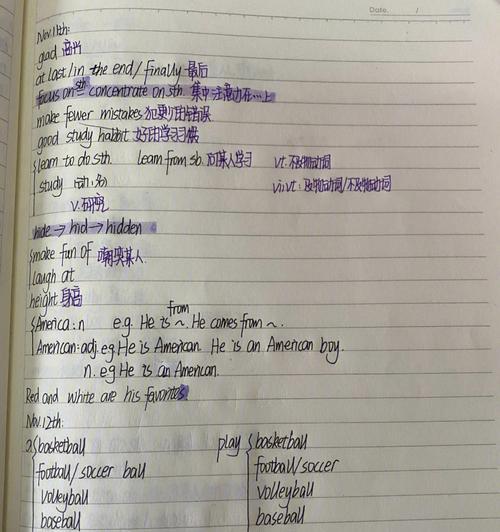 Date. /
Nov 11th:
glad 高兴
at last/in the end/finally 最后
focus on sth = concentrate on sth. 集中注意力在…上
make fewer mistakes 犯更少的错误
good study habit 好的学习习惯
learn to do sth. learn from sb. 向某人学习 vt: 不及物动词
study 动, 名 vi,vt: 及物动词/不及物动词
v. 研究
hide → hid → hidden
make fun of 嘲笑某人
laugh at
height 身高
America: n e.g. He is from ~. He comes from ~.
American: adj. eg He is American. He is an American boy.
n. eg He is an American.
Red and white are his favorites.
Nov. 12th:
a basketball play basketball
football/soccer ball football/soccer
volleyball volleyball
baseball baseball